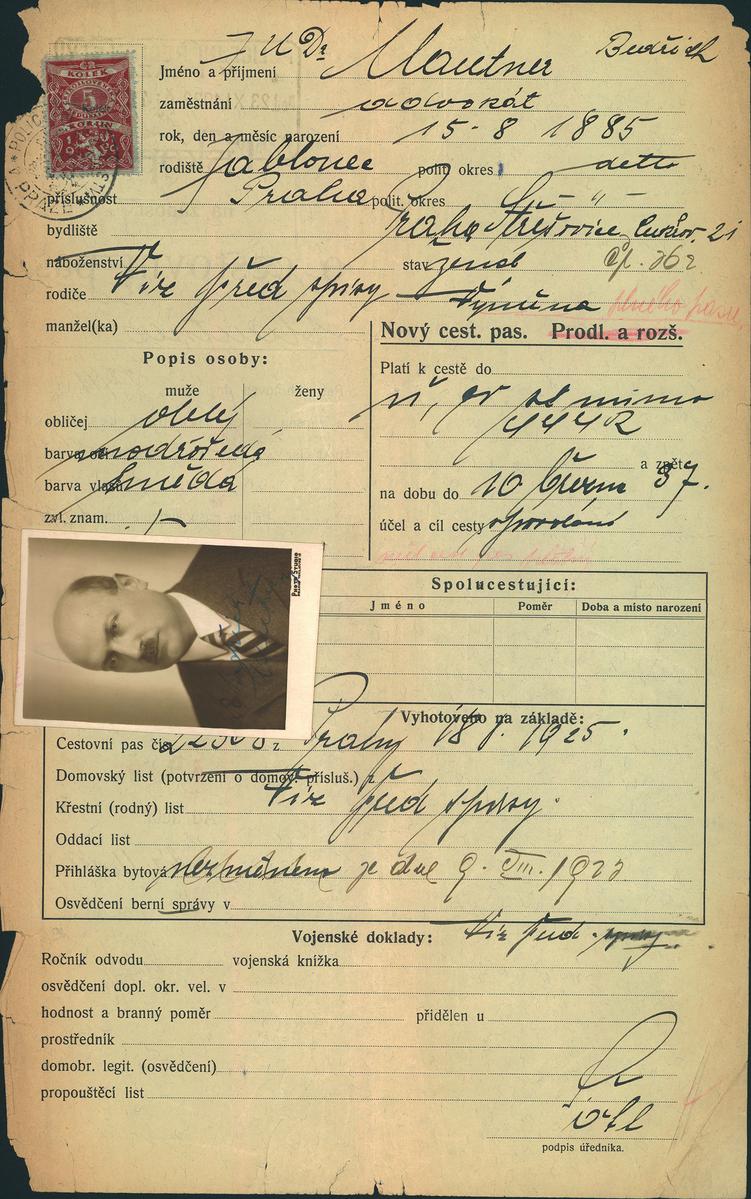 KOLEK
5
KORUN
Jméno a příjmení JUDr Mautner Bedřich
zaměstnání advokát
rok, den a měsíc narození 15 - 8 1885
rodiště Jablonec polit. okres detto
příslušnost Praha polit. okres – " –
bydliště Praha Střešovice, 21
čp. 362
náboženství stav ženat
rodiče Viz před spisy
manžel(ka)
Výměna
Nový cest. pas. Prodl. a rozš.
Popis osoby:
muže ženy
obličej oblý
barva očí modrošedá
barva vlasů hnědá
zvl. znam.
Platí k cestě do
mimo
a zpět
na dobu do 10 březm 37.
účel a cíl cesty
Spolucestující:
Jméno Poměr Doba a místo narození
Vyhotoveno na základě:
Cestovní pas čís. Prahy 1925.
Domovský list (potvrzení o domov. přísluš.) z
Křestní (rodný) list Viz před spisy.
Oddací list
Přihláška bytová nezměněna je dne 9. VIII. 1922
Osvědčení berní správy v
Vojenské doklady: Viz před.
Ročník odvodu vojenská knížka
osvědčení dopl. okr. vel. v
hodnost a branný poměr přidělen u
prostředník
domobr. legit. (osvědčení)
propouštěcí list
podpis úředníka.